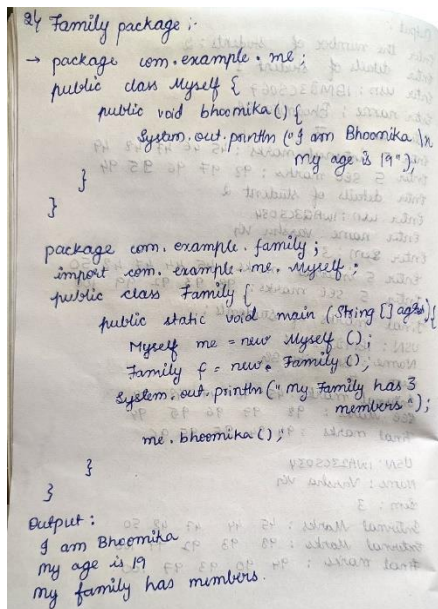 24 Family package :-
→ package com.example.me;
public class Myself {
public void bhoomika() {
System.out.println ("I am Bhoomika \n
my age is 19");
}
}
package com.example.family;
import com.example.me.Myself;
public class Family {
public static void main (String [] args) {
Myself me = new Myself ();
Family f = new Family ();
System.out.println (" my Family has 3
members ");
me.bhoomika();
}
}
Output :
I am Bhoomika
my age is 19
my family has members.